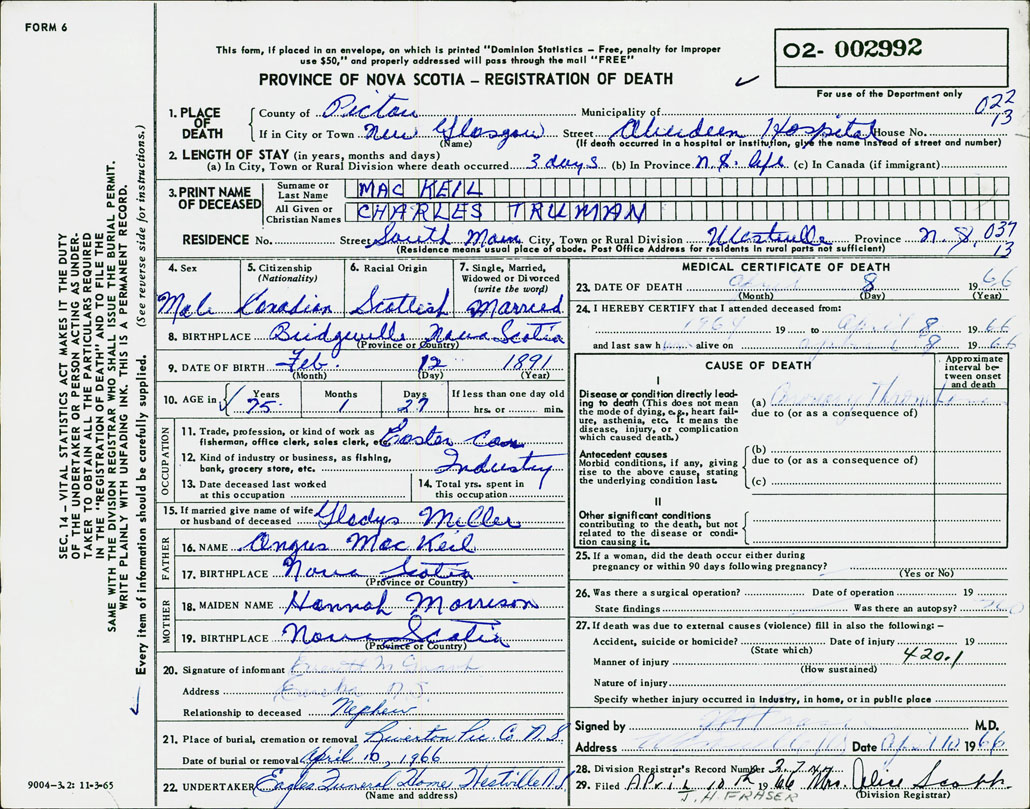 FORM 6
This form, if placed in an envelope, on which is printed "Dominion Statistics – Free, penalty for improper
use $50," and properly addressed will pass through the mail "FREE"
PROVINCE OF NOVA SCOTIA – REGISTRATION OF DEATH
02- 002992
For use of the Department only
022
13
1. PLACE OF DEATH
County of Pictou Municipality of
If in City or Town New Glasgow Street Aberdeen Hospital House No.
(Name) (If death occurred in a hospital or institution, give the name instead of street and number)
2. LENGTH OF STAY (in years, months and days)
(a) In City, Town or Rural Division where death occurred 3 days (b) In Province N.S. life (c) In Canada (if immigrant)
3. PRINT NAME OF DECEASED
Surname or Last Name MAC KEIL
All Given or Christian Names CHARLES TRUMAN
RESIDENCE No. Street South Main City, Town or Rural Division Westville Province N.S. 037
13
(Residence means usual place of abode. Post Office Address for residents in rural parts not sufficient)
4. Sex Male
5. Citizenship (Nationality) Canadian
6. Racial Origin Scottish
7. Single, Married, Widowed or Divorced (write the word) Married
8. BIRTHPLACE Bridgeville Nova Scotia
(Province or Country)
9. DATE OF BIRTH Feb. 12 1891
(Month) (Day) (Year)
10. AGE in Years 75 Months 1 Days 27 If less than one day old
hrs. or min.
OCCUPATION
11. Trade, profession, or kind of work as
fisherman, office clerk, sales clerk, etc. Easter Can
12. Kind of industry or business, as fishing,
bank, grocery store, etc. Industry
13. Date deceased last worked
at this occupation
14. Total yrs. spent in
this occupation
15. If married give name of wife
or husband of deceased Gladys Miller
FATHER
16. NAME Angus Mac Keil
17. BIRTHPLACE Nova Scotia
(Province or Country)
MOTHER
18. MAIDEN NAME Hannah Morrison
19. BIRTHPLACE Nova Scotia
(Province or Country)
20. Signature of informant
Address Eureka N.S.
Relationship to deceased Nephew
21. Place of burial, cremation or removal Riverton Pic Co N.S.
Date of burial or removal April 10, 1966
22. UNDERTAKER Eagles Funeral Home Westville N.S.
(Name and address)
MEDICAL CERTIFICATE OF DEATH
23. DATE OF DEATH April 8 1966
(Month) (Day) (Year)
24. I HEREBY CERTIFY that I attended deceased from:
1964 19 to April 8 1966
and last saw him alive on April 8 1966
CAUSE OF DEATH
Approximate interval between onset and death
I
Disease or condition directly leading to death (This does not mean
the mode of dying, e.g., heart failure, asthenia, etc. It means the
disease, injury, or complication
which caused death.)
(a) Coronary
due to (or as a consequence of)
Antecedent causes
Morbid conditions, if any, giving
rise to the above cause, stating
the underlying condition last.
(b)
due to (or as a consequence of)
(c)
II
Other significant conditions
contributing to the death, but not
related to the disease or condition causing it.
25. If a woman, did the death occur either during
pregnancy or within 90 days following pregnancy?
(Yes or No)
26. Was there a surgical operation? Date of operation 19
State findings Was there an autopsy?
27. If death was due to external causes (violence) fill in also the following: –
Accident, suicide or homicide? Date of injury 19
(State which)
Manner of injury 420.1
(How sustained)
Nature of injury
Specify whether injury occurred in industry, in home, or in public place
Signed by M.D.
Address Date April 10 1966
28. Division Registrar's Record Number
29. Filed April 10th 1966 Mrs. Alice Scobb
J.H. FRASER (Division Registrar)
SEC. 14 – VITAL STATISTICS ACT MAKES IT THE DUTY
OF THE UNDERTAKER OR PERSON ACTING AS UNDER-
TAKER TO OBTAIN ALL THE PARTICULARS REQUIRED
IN THE "REGISTRATION OF DEATH" AND TO FILE THE
SAME WITH THE DIVISION REGISTRAR WHO SHALL ISSUE THE BURIAL PERMIT.
WRITE PLAINLY WITH UNFADING INK. THIS IS A PERMANENT RECORD.
Every item of information should be carefully supplied. (See reverse side for instructions.)
9004-3.2: 11-3-65